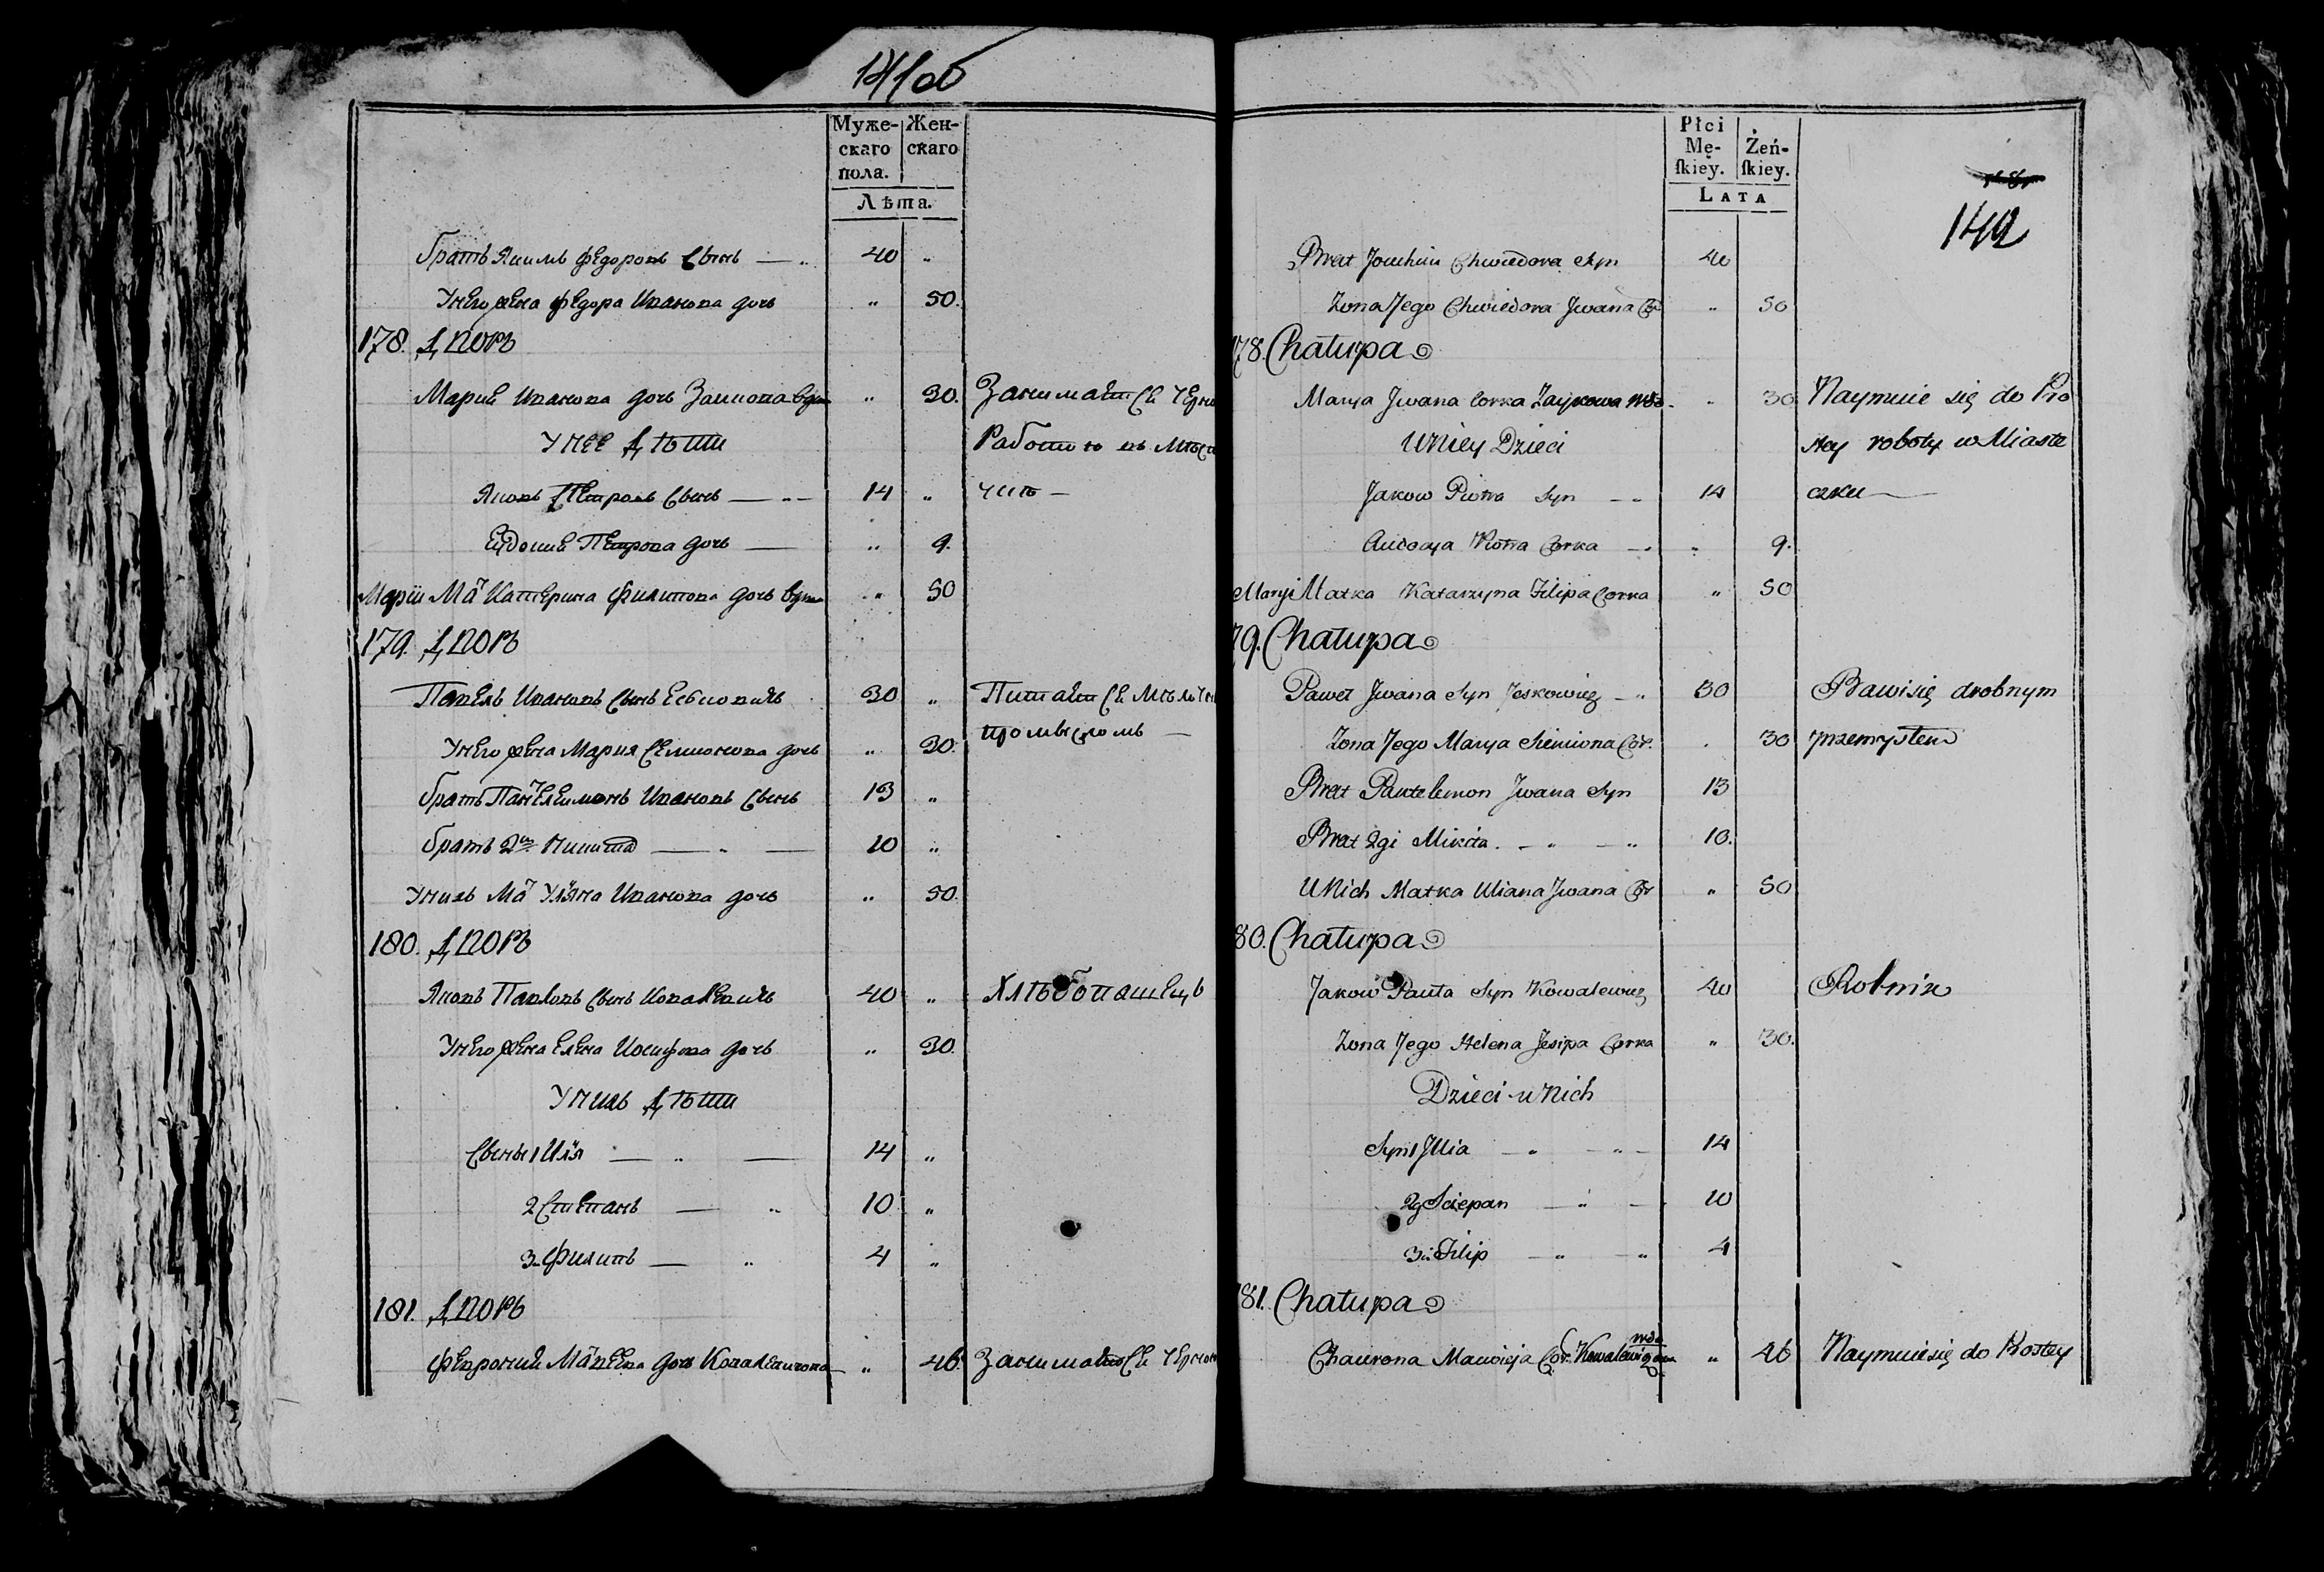 141об
Муже-скаго пола. Жен-скаго
Лѣта.
братъ Якимъ Федоровъ сынъ — „ 40 „
У него жена Федора Иванова дочь „ 50.
178. Дворъ
Мария Иванова дочь вдова „ 30. Занимается черно
У нее Дѣти Работою въ Мѣст
Яковъ Петровъ сынъ — „ — 14 „ чкѣ —
Евдокия Петрова дочь — „ 9.
Марiи Мать Катерина Филипова дочь вдова „ 50
179. Дворъ
Павелъ Ивановъ сынъ Еськовичъ 30 „ Питается Мѣлоч
У него жена Мария Семионова дочь „ 30. промысломъ —
братъ Пантелеимонъ Ивановъ сынъ 13 „
братъ 2й Никита — „ — 10 „
У нихъ Мать Уляна Иванова дочь „ 50.
180. Дворъ
Яковъ Павловъ сынъ Ковалевичъ 40 „ Хлѣбопашецъ
У него жена Елена Иосифова дочь „ 30.
У нихъ Дѣти
Сыны 1 Илья — „ — 14 „
2 Степанъ — „ 10 „
3. Филипъ — „ 4 „
181. Дворъ
Феврония Матвеева дочь Ковалевичова „ 46. Занимается черно
Płci Mę-ſkiey. Żeń-ſkiey.
Lata
142
Brat Joachim Chwiedora Syn 40
Zona Jego Chwiedora Jwana Cor „ 50
78. Chałupa
Marya Jwana Corka Zaykowa wdo. „ 30 Naymuie się do Pro
U Niey Dzieci stey roboty w Miaste
Jakow Piotra Syn — „ 14 czku —
Audocya Piotra Corka — „ „ 9.
Maryi Matka Katarzyna Filipa Corka „ 50
79. Chałupa
Paweł Jwana Syn Jeskowicz — „ 30 Bawi się drobnym
Zona Jego Marya Siemiona Cor. . 30 przemysłem
Brat Pantelemon Jwana Syn 13
Brat 2gi Mikita. — „ — „ 10.
U Nich Matka Uliana Jwana Cor „ 50
80. Chałupa
Jakow Pawła Syn Kowalewicz 40 Rolnik
Zona Jego Helena Jesipa Corka „ 30.
Dzieci u Nich
Syn 1 Jllia — „ — „ — 14
2gi Sciepan — „ — 10
3ci Filip — „ — „ 4
81. Chałupa
Chawrona Macieja Cor. Kowalewiczowa wdo „ 46 Naymuie się do Prostey